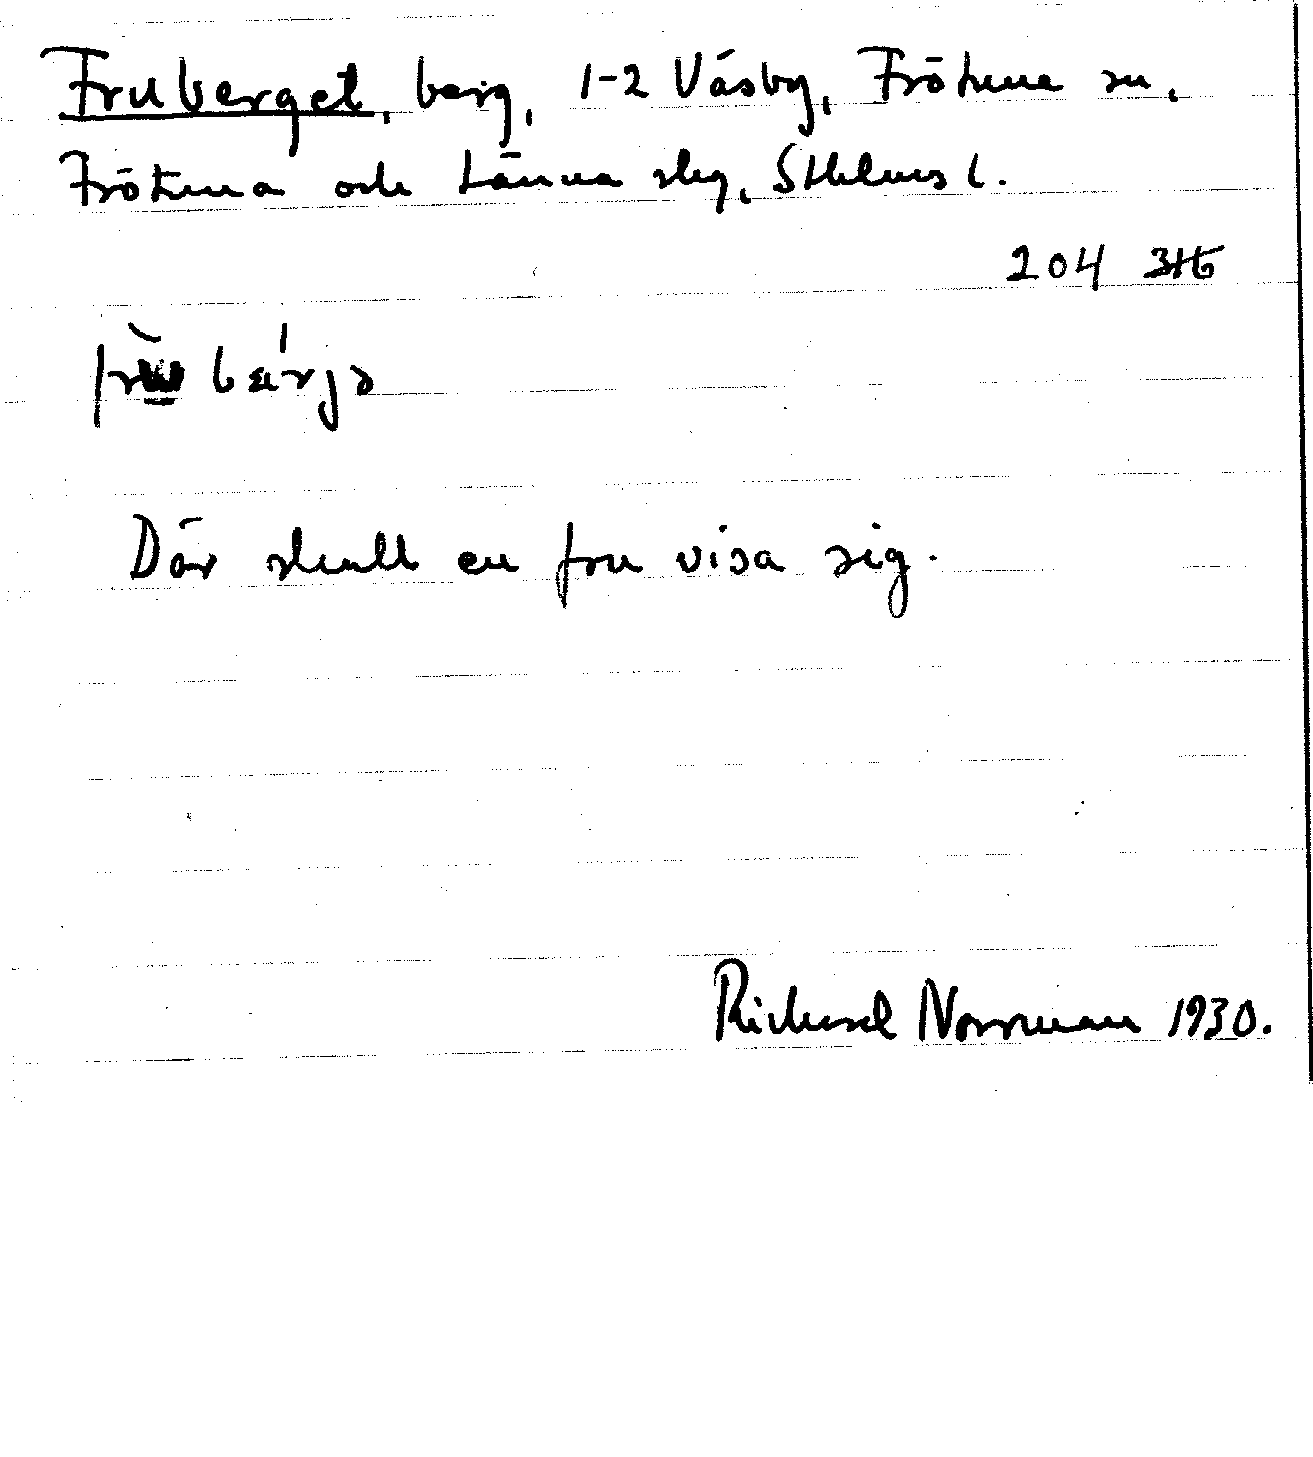 Fruberget, berg, 1-2 Väsby, Frötuna sn.
Frötuna och Länna skg, Sthlms l.
204
Där skall en fru visa sig.
Richard Norrman 1930.